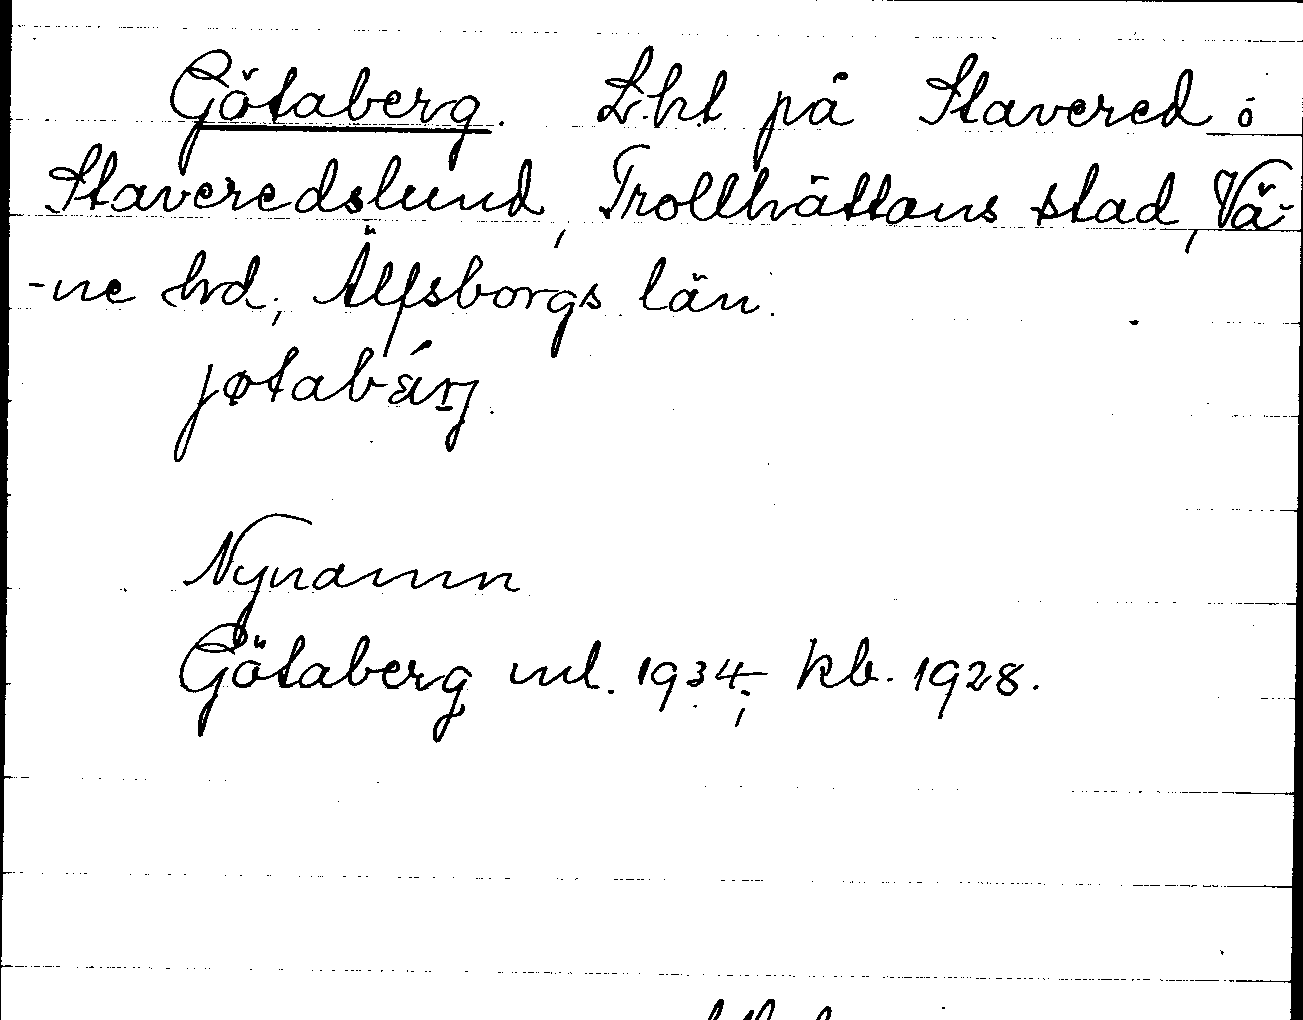 Götaberg. Lht på Stavered o
Staveredslund, Trollhättans stad, Vä-
-ne hd, Älfsborgs län.
jøtabǽrj.
Nynamn
Götaberg ml. 1934; kb. 1928.